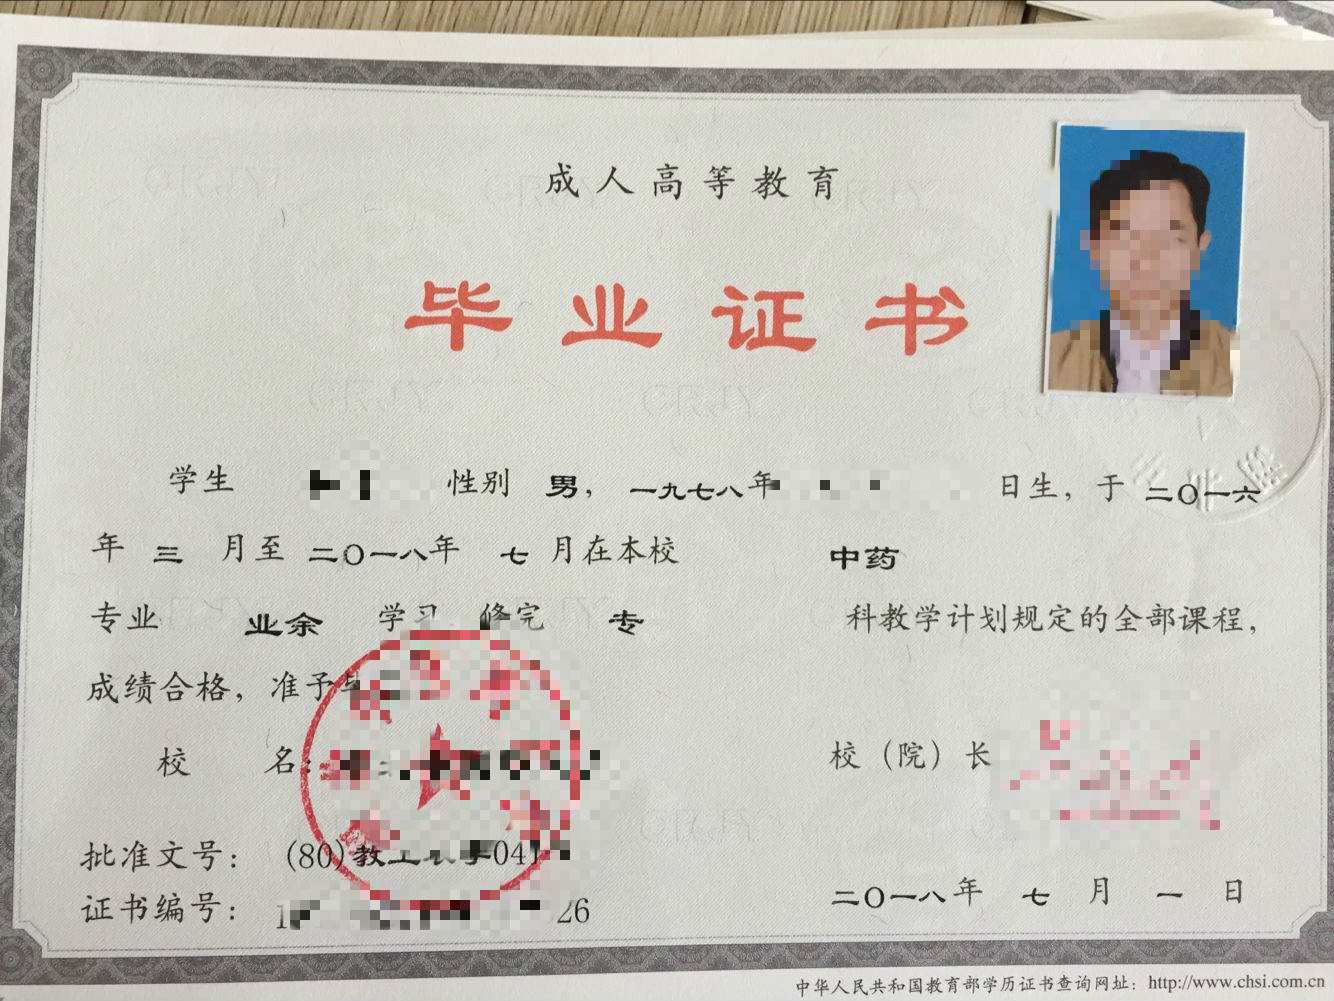 成人高等教育
毕业证书
学生 性别 男，一九七八年 日生，于 二〇一六
年 三 月至 二〇一八年 七 月在本校 中药
专业 业余 学习 修完 专 科教学计划规定的全部课程，
成绩合格，准予
校 名：
校（院）长
批准文号： (80)教 041
证书编号： 1 26
二〇一八年 七 月 一 日
中华人民共和国教育部学历证书查询网址：http://www.chsi.com.cn